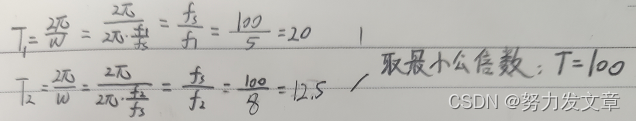 T₁ = 2π/w = 2π/(2π·f₁/fs) = fs/f₁ = 100/5 = 20
T₂ = 2π/w = 2π/(2π·f₂/fs) = fs/f₂ = 100/8 = 12.5
取最小公倍数：T=100
CSDN @努力发文章